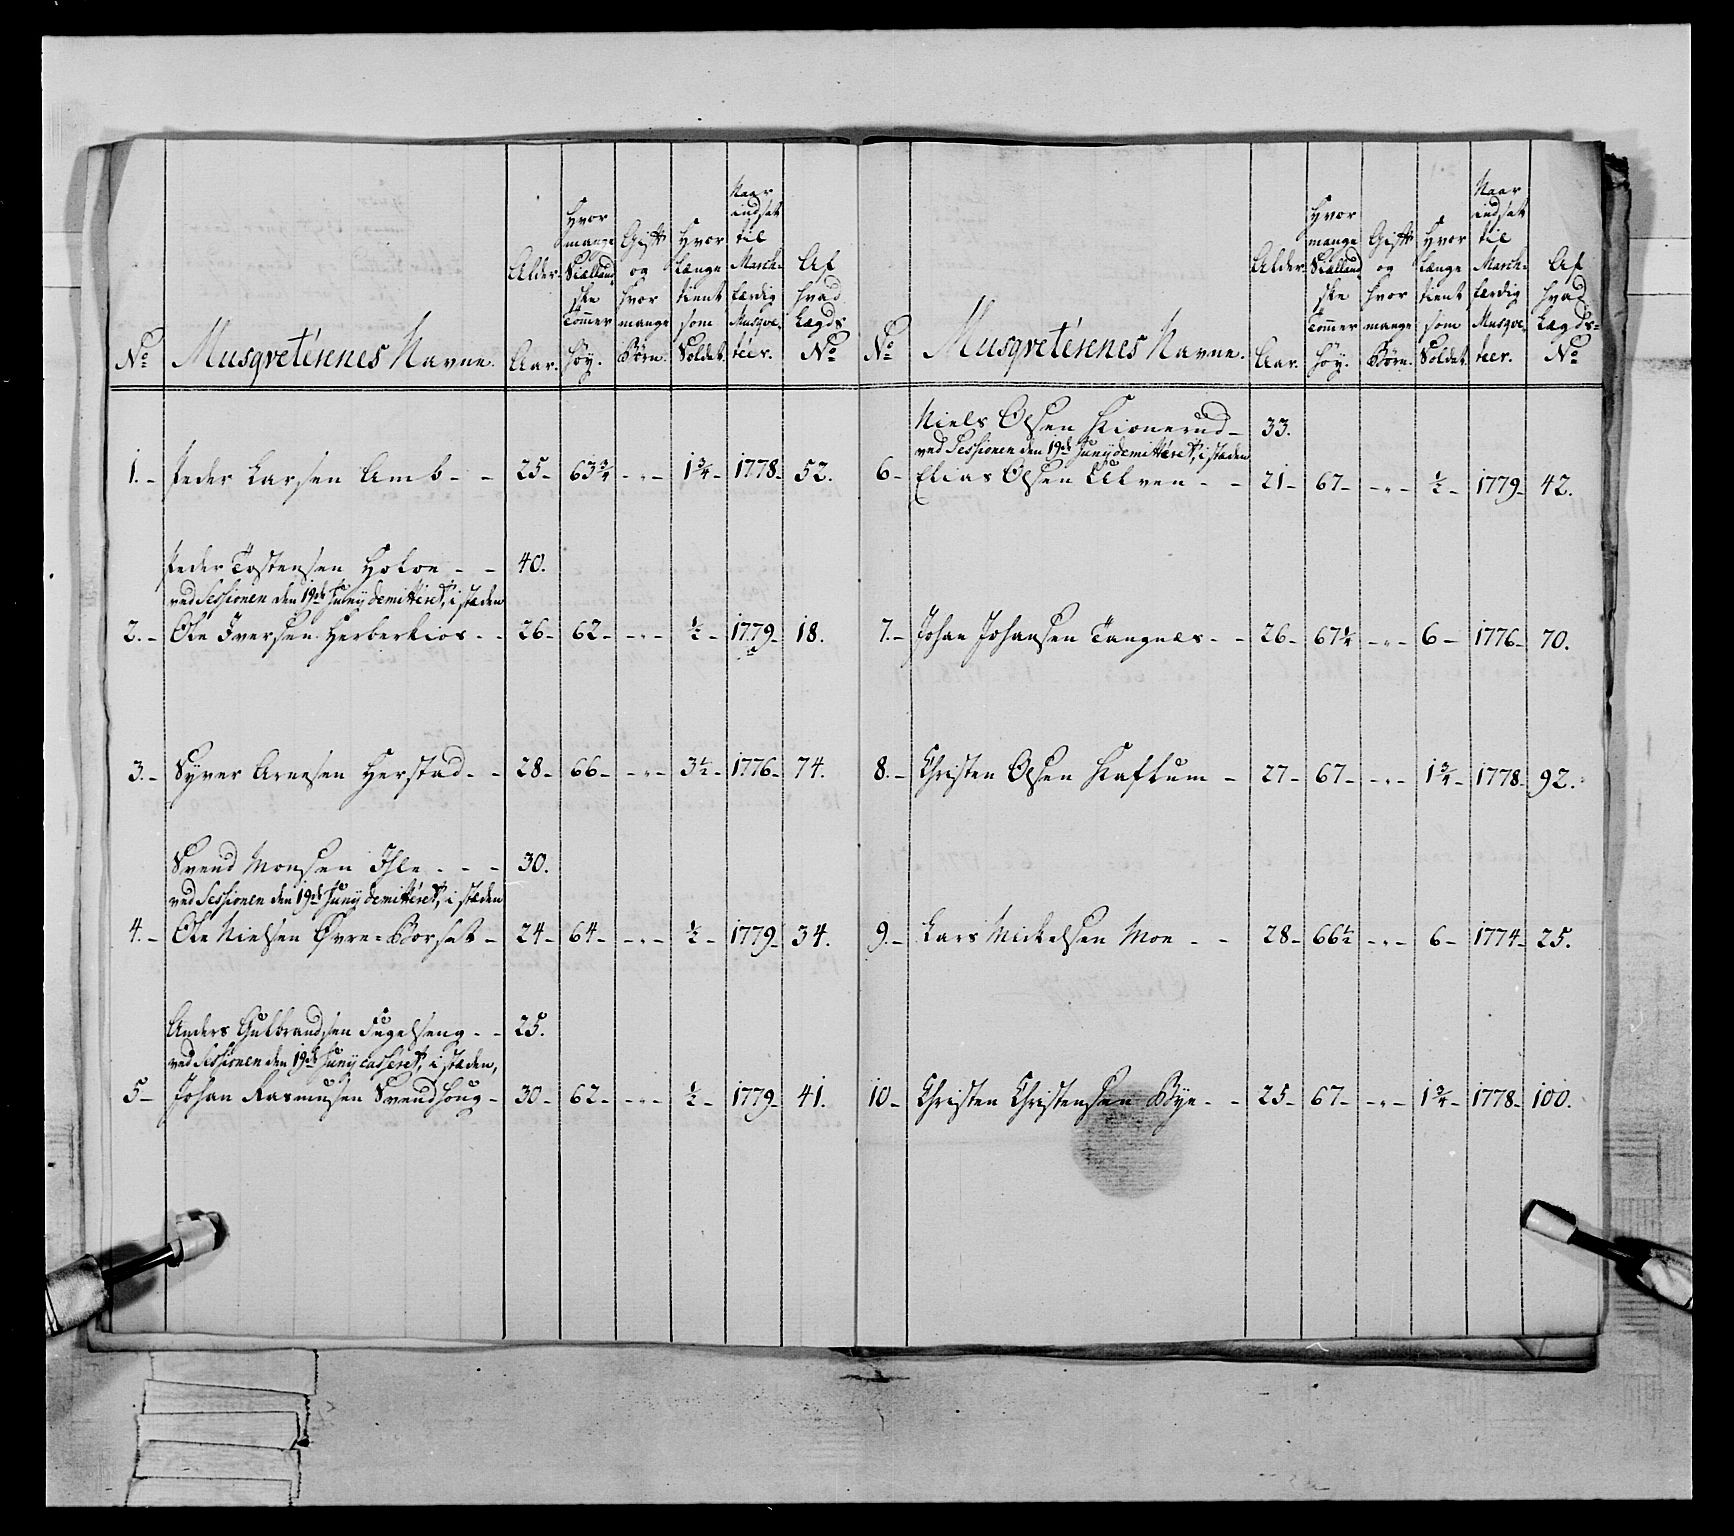 No Musqveterernes Navne. Alder Aar. Hvor mange Siællandske Tommer høy. Gift og hvor mange Børn. Hvor længe tient som Soldat. Naar indsat til March-færdig Musqve-teer. Af hvad Lægds No
1. - Peder Larsen Amb - - 25 - 63 3/4 - " - 1 3/4 - 1778 - 52.
Peder Tostensen - - 40.
ved Sessionen den 19de Juny demitteret, i stæden
2. - Ole Iversen - - 26 - 62 - - " - 1/2 - 1779 - 18.
3. - Syver Arnesen Herstad - - 28 - 66 - - " - 3 1/2 - 1776 - 74.
Svend Monsen Ihle - - - 30.
ved Sessionen den 19de Juny demitteret, i stæden
4. - Ole Nielsen Øvre=Borset - 24 - 64 - - " - 1/2 - 1779 - 34.
Anders Gulbrandsen Fugelseng - - 25.
ved Sessionen den 19de Juny casseret, i stæden,
5 - Johan Rasmusen Svendhoug - 30 - 62 - - " - 1/2 - 1779 - 41.
No Musqveterernes Navne. Alder Aar. Hvor mange Siællandske Tommer høy. Gift og hvor mange Børn. Hvor længe tient som Soldat. Naar indsat til March-færdig Musqve-teer. Af hvad Lægds- No
Niels Olsen Kionerud - 33.
ved Sessionen den 19de Juny demitteret, i stæden
6 - Elias Olsen Ulven - - 21 - 67 - - " - 1/2 - 1779 - 42.
7. - Johan Johansen Tangnes - - 26 - 67 1/4 - " - 6 - 1776 - 70.
8. - Christen Olsen Kaftum - 27 - 67 - - " - 1 3/4 - 1778 - 92.
9. - Lars Mickelsen Moe - - 28 - 66 1/2 - " - 6 - 1774 - 25.
10 - Christen Christensen Bye - - 25 - 67 - - " - 1 3/4 - 1778 - 100.